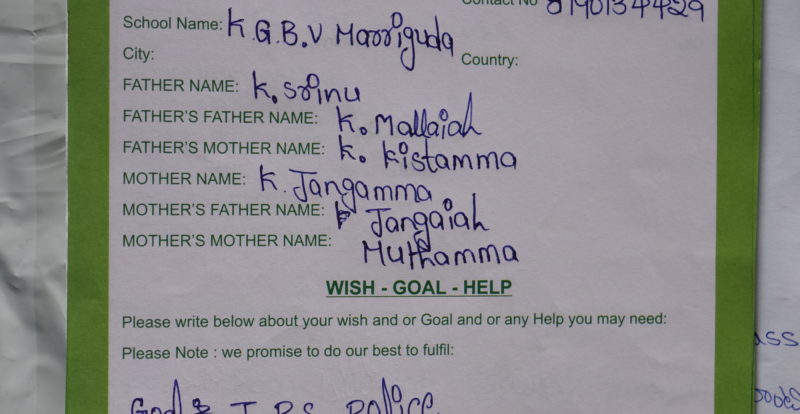 Contact No 81901344829
School Name: K.G.B.V Marriguda
City: Country:
FATHER NAME: K. Srinu
FATHER'S FATHER NAME: K. Mallaiah
FATHER'S MOTHER NAME: K. Kistamma
MOTHER NAME: K. Jangamma
MOTHER'S FATHER NAME: Jangaiah
MOTHER'S MOTHER NAME: Muthamma
WISH - GOAL - HELP
Please write below about your wish and or Goal and or any Help you may need:
Please Note : we promise to do our best to fulfil:
I.P.S. Police